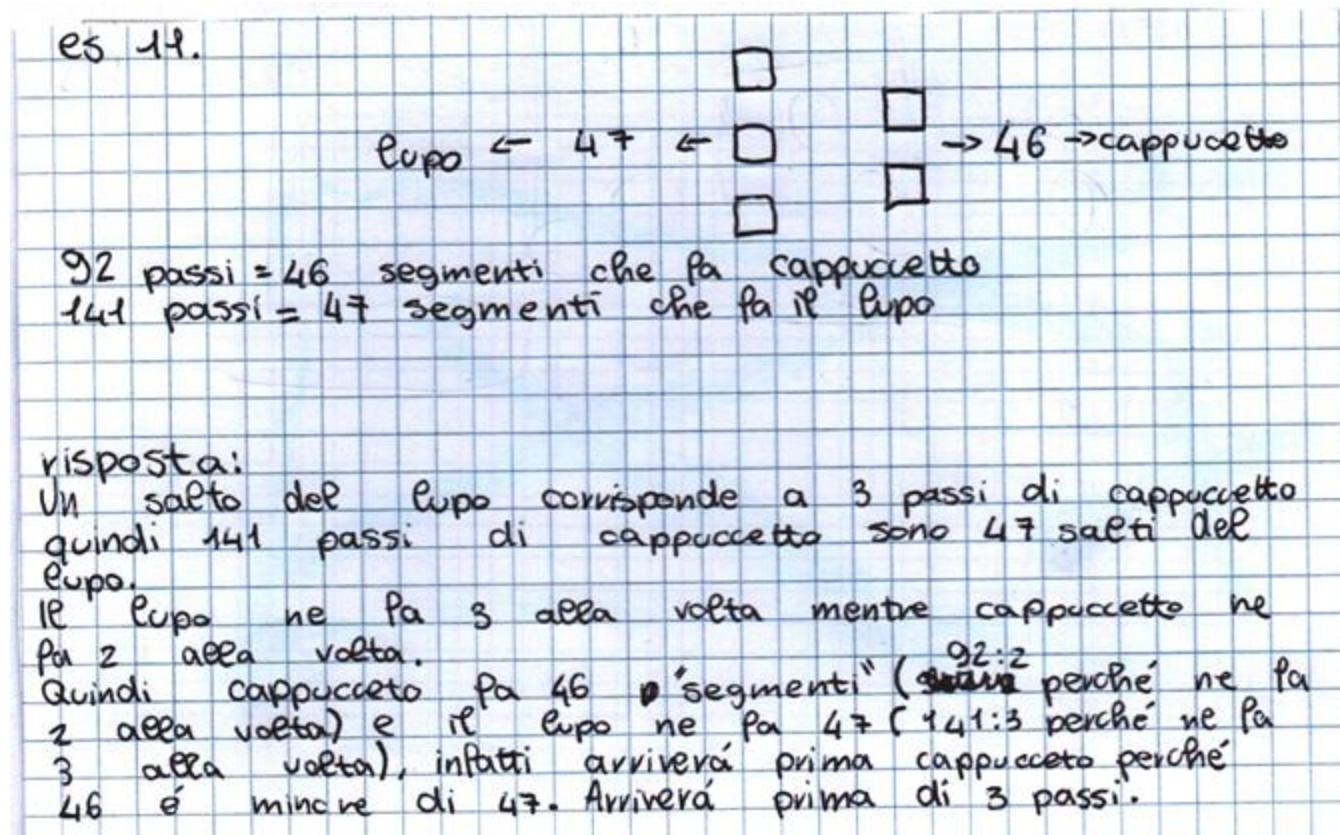 es 11.
lupo ← 47 ← → 46 → cappuccetto
92 passi = 46 segmenti che fa cappuccetto
141 passi = 47 segmenti che fa il lupo
risposta:
Un salto del lupo corrisponde a 3 passi di cappuccetto
quindi 141 passi di cappuccetto sono 47 salti del
lupo.
Il lupo ne fa 3 alla volta mentre cappuccetto ne
fa 2 alla volta.
Quindi cappucceto fa 46 "segmenti" (92:2 perché ne fa
2 alla volta) e il lupo ne fa 47 (141:3 perché ne fa
3 alla volta), infatti arriverá prima cappucceto perché
46 é minore di 47. Arriverá prima di 3 passi.